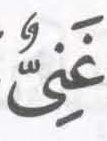 غَنِيٌّ